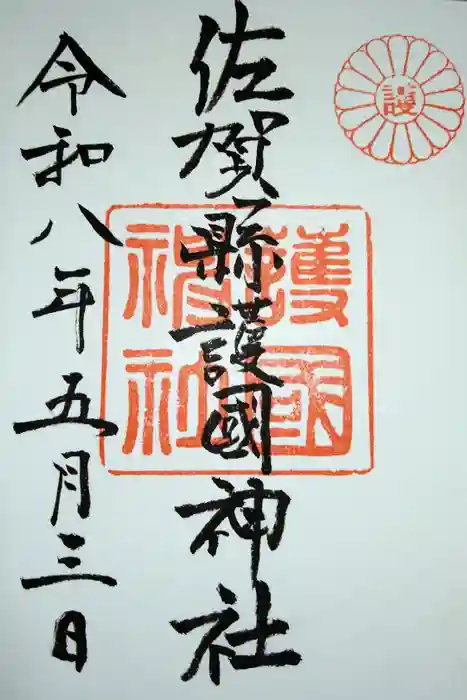 護
佐賀縣護國神社
護國神社
令和八年五月三日